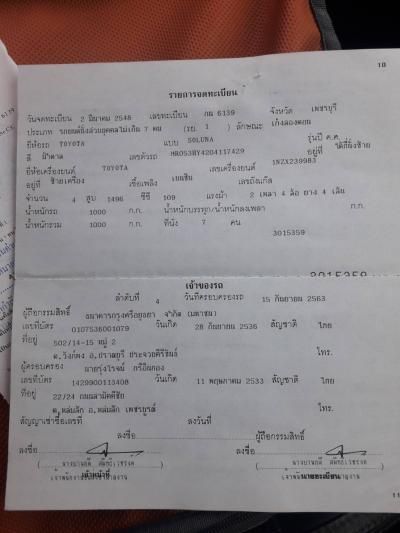 18
รายการจดทะเบียน
วันจดทะเบียน 2 มีนาคม 2548 เลขทะเบียน กม 6139 จังหวัด เพชรบุรี
ประเภท รถยนต์นั่งส่วนบุคคลไม่เกิน 7 คน (รย. 1 ) ลักษณะ เก๋งสองตอน
ยี่ห้อรถ TOYOTA แบบ SOLUNA รุ่นปี ค.ศ.
สี เลขตัวรถ MR053HY4204117429 อยู่ที่
ยี่ห้อเครื่องยนต์ TOYOTA เลขเครื่องยนต์ 1NZX239983
อยู่ที่ ซ้ายเครื่อง เชื้อเพลิง เบนซิน เลขถังแก๊ส
จำนวน 4 สูบ 1496 ซีซี 109 แรงม้า 2 เพลา 4 ล้อ ยาง 4 เส้น
น้ำหนักรถ 1000 ก.ก. น้ำหนักบรรทุก/น้ำหนักลงเพลา ก.ก.
น้ำหนักรวม 1000 ก.ก. ที่นั่ง 7 คน
3015359
3015359
เจ้าของรถ
ลำดับที่ 4 วันที่ครอบครองรถ 15 กันยายน 2563
ผู้ถือกรรมสิทธิ์ ธนาคารกรุงศรีอยุธยา จำกัด (มหาชน)
เลขที่บัตร 0107536001079 วันเกิด 28 กันยายน 2536 สัญชาติ ไทย
ที่อยู่ 502/14-15 หมู่ 2
ต.วังก์พง อ.ปราณบุรี ประจวบคีรีขันธ์ โทร.
ผู้ครอบครอง นายรุ่งโรจน์
เลขที่บัตร 1429900113408 วันเกิด 11 พฤษภาคม 2533 สัญชาติ ไทย
ที่อยู่ 22/24
ต.หล่มสัก อ.หล่มสัก เพชรบูรณ์ โทร.
สัญญาเช่าซื้อเลขที่ ลงวันที่
ลงชื่อ ผู้ถือกรรมสิทธิ์
ลงชื่อ ลงชื่อ
เจ้าหน้าที่ นายทะเบียน
11